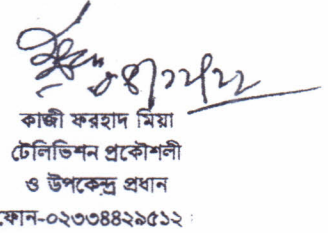 কাজী ফরহাদ মিয়া
টেলিভিশন প্রকৌশলী
ও উপকেন্দ্র প্রধান
ফোন-০২৩৩৪৪২৯৫১২